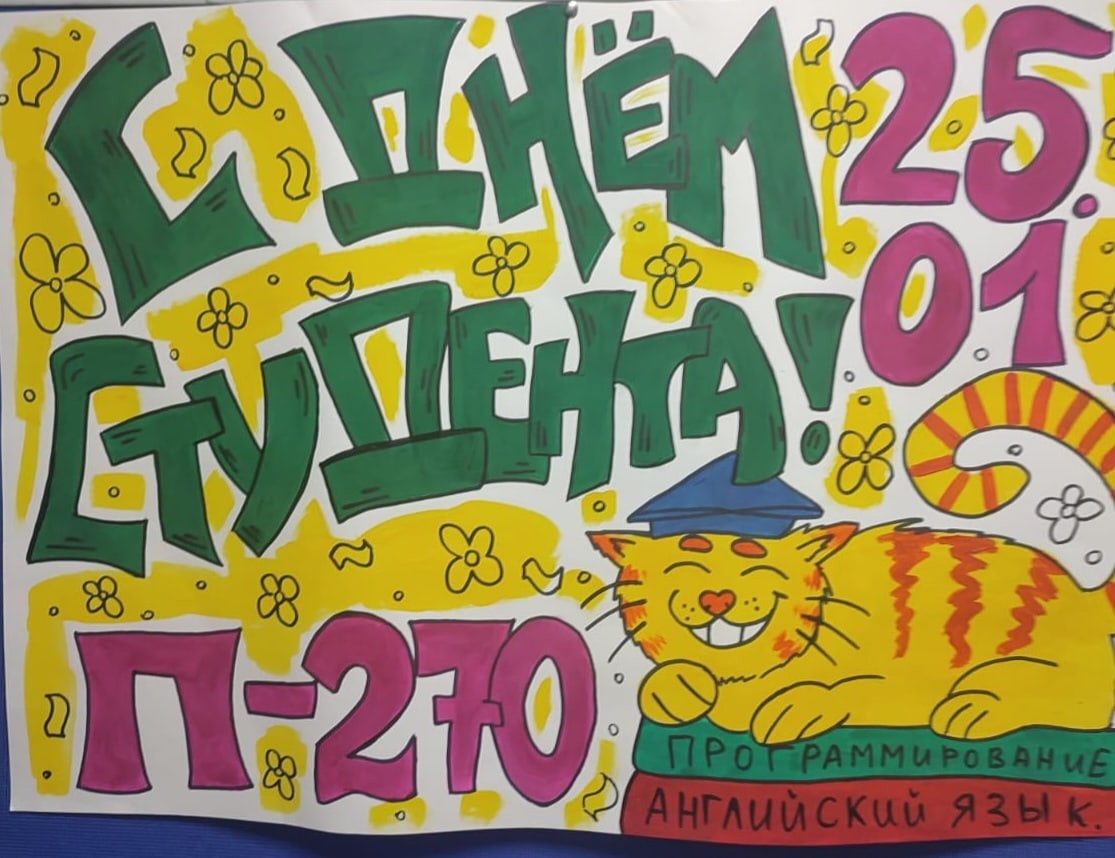 С ДНЁМ
25.
01
СТУДЕНТА!
П-270
ПРОГРАММИРОВАНИЕ
АНГЛИЙСКИЙ ЯЗЫК.